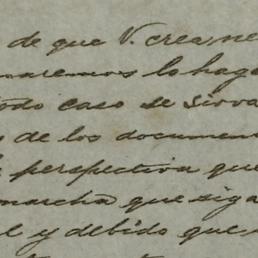 de que V. crea, ne
naremos lo haga
todo caso se sirva
de los documen
perspectiva que
marcha que siga
l y debido que